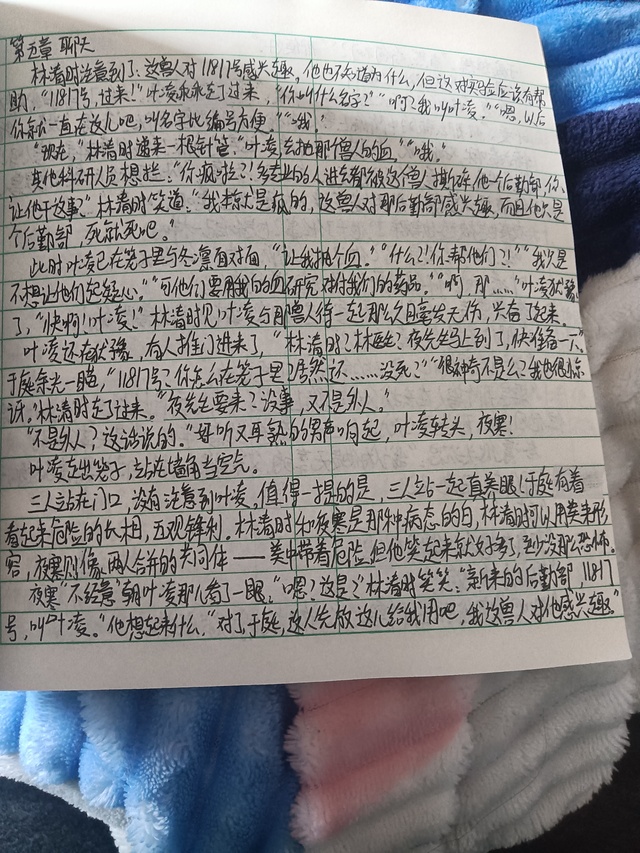 第五章 聊天
林清时注意到了:这兽人对11817号感兴趣,他也不知道为什么,但这对实验应该有帮
助。“11817号,过来!”叶凌乖乖走了过来,“你叫什么名字?”“啊?我叫叶凌。”“嗯,以后
你就一直在这儿吧,叫名字比编号方便。”“哦。”
“现在,”林清时递来一根针管。“叶凌去抽那兽人的血。”“哦。”
其他科研人员想拦。“你疯啦?!多专业的人进去都被这兽人撕碎,他一个后勤部,你
让他干这事?”林清时笑道:“我本就是疯的,这兽人对那后勤部感兴趣,而且他只是
个后勤部,死就死吧。”
此时叶凌已在笼子里与冬凛面对面,“让我抽个血。”“什么?!你帮他们?!”“我只是
不想让他们起疑心。”“可他们要用我的血研究对付我们的药品。”“啊,那……”叶凌犹豫
了,“快啊!叶凌!”林清时见叶凌与那兽人待一起那么久且毫发无伤,兴奋了起来。
叶凌还在犹豫,有人推门进来了,“林清时?林医生?夜先生马上到了,快准备一下。”
于庭余光一瞄,“11817号?你怎么在笼子里?居然还……没死?”“很神奇不是么?我也很惊
讶。”林清时走了过来。“夜先生要来?没事,又不是外人。”
“不是外人?这话说的。”好听又耳熟的男声响起,叶凌转头,夜寒!
叶凌走出笼子,站在墙角当空气。
三人站在门口,没有注意到叶凌。值得一提的是,三人站一起真养眼!于庭有着
看起来危险的长相,五观锋利。林清时和夜寒是那种病态的白,林清时可以用美来形
容,夜寒则像两人合并的共同体——美中带着危险,但他笑起来就好多了,至少没那么恐怖。
夜寒“不经意”朝叶凌那儿看了一眼。“嗯?这是?”林清时笑笑:“新来的后勤部,11817
号,叫叶凌。”他想起来什么。“对了,于庭,这人先放这儿给我用吧,我这兽人对他感兴趣。”